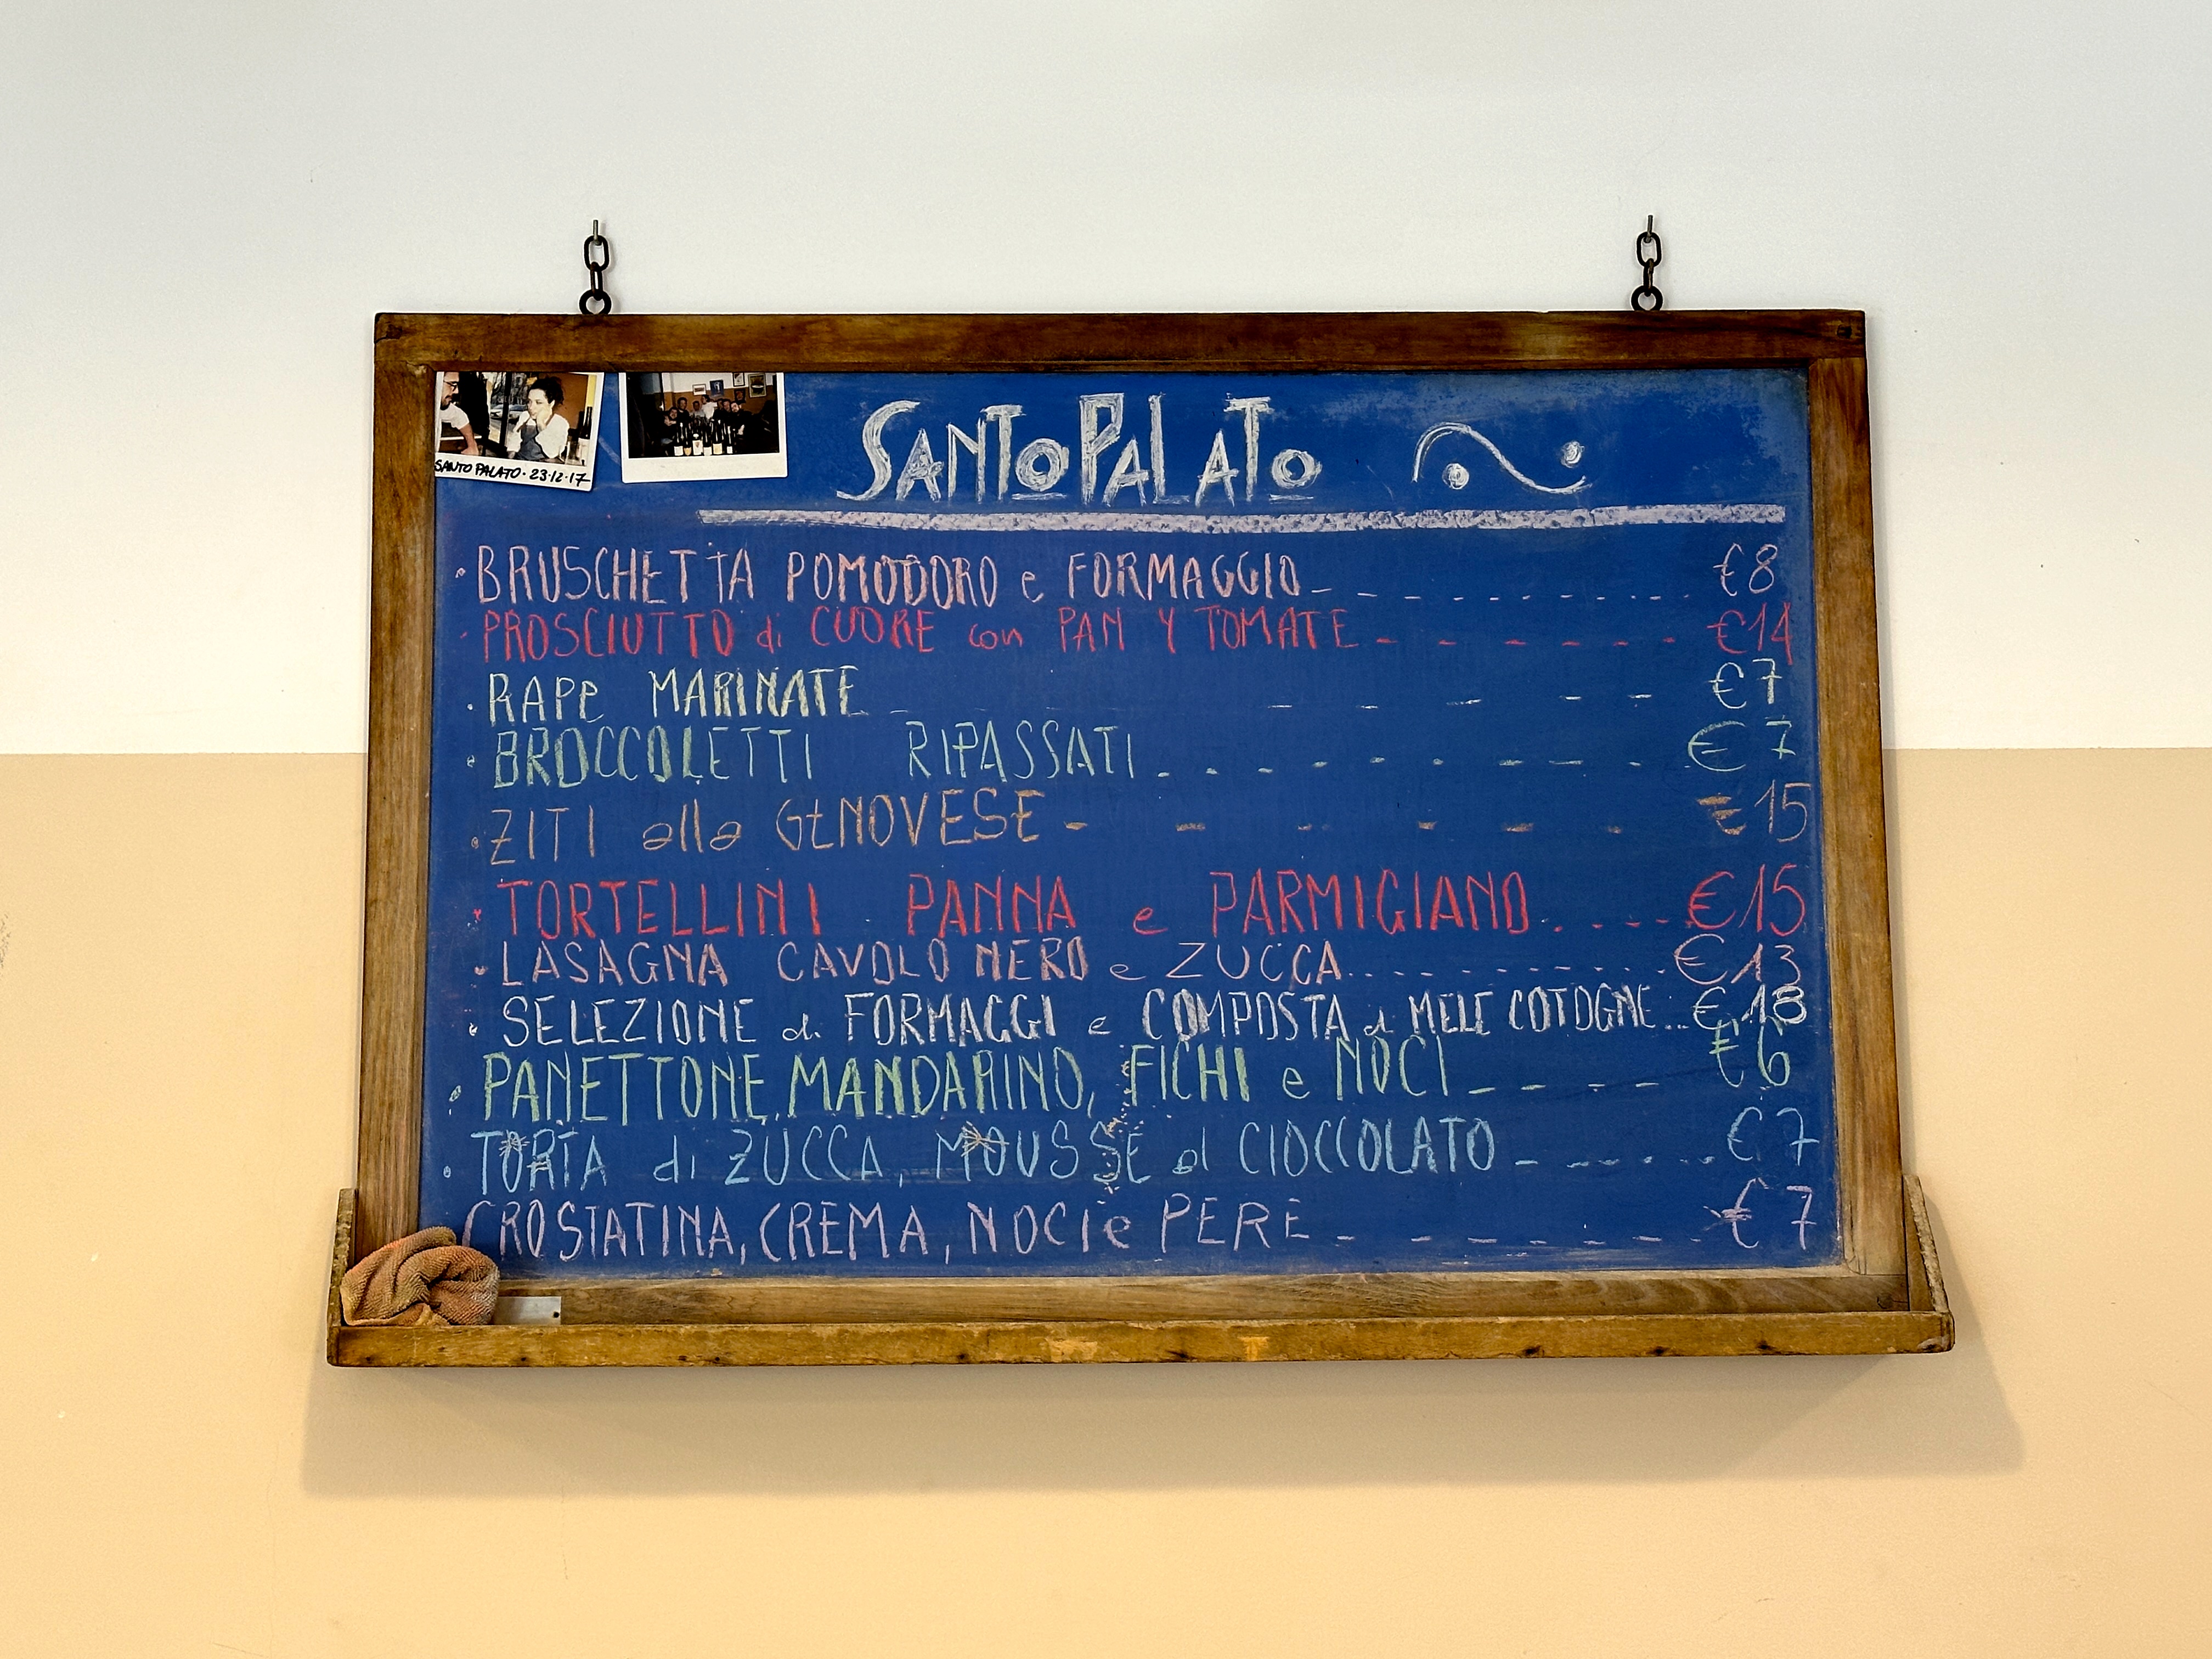 SANTO PALATO
SANTO PALATO · 23·12·17
· BRUSCHETTA POMODORO e FORMAGGIO €8
· PROSCIUTTO di CUORE con PAN Y TOMATE €14
· RAPE MARINATE €7
· BROCCOLETTI RIPASSATI €7
· ZITI alla GENOVESE €15
· TORTELLINI PANNA e PARMIGIANO €15
· LASAGNA CAVOLO NERO e ZUCCA €13
· SELEZIONE di FORMAGGI e COMPOSTA di MELE COTOGNE €
· PANETTONE, MANDARINO, FICHI e NOCI €6
· TORTA di ZUCCA, MOUSSE al CIOCCOLATO €7
CROSTATINA, CREMA, NOCI e PERE €7